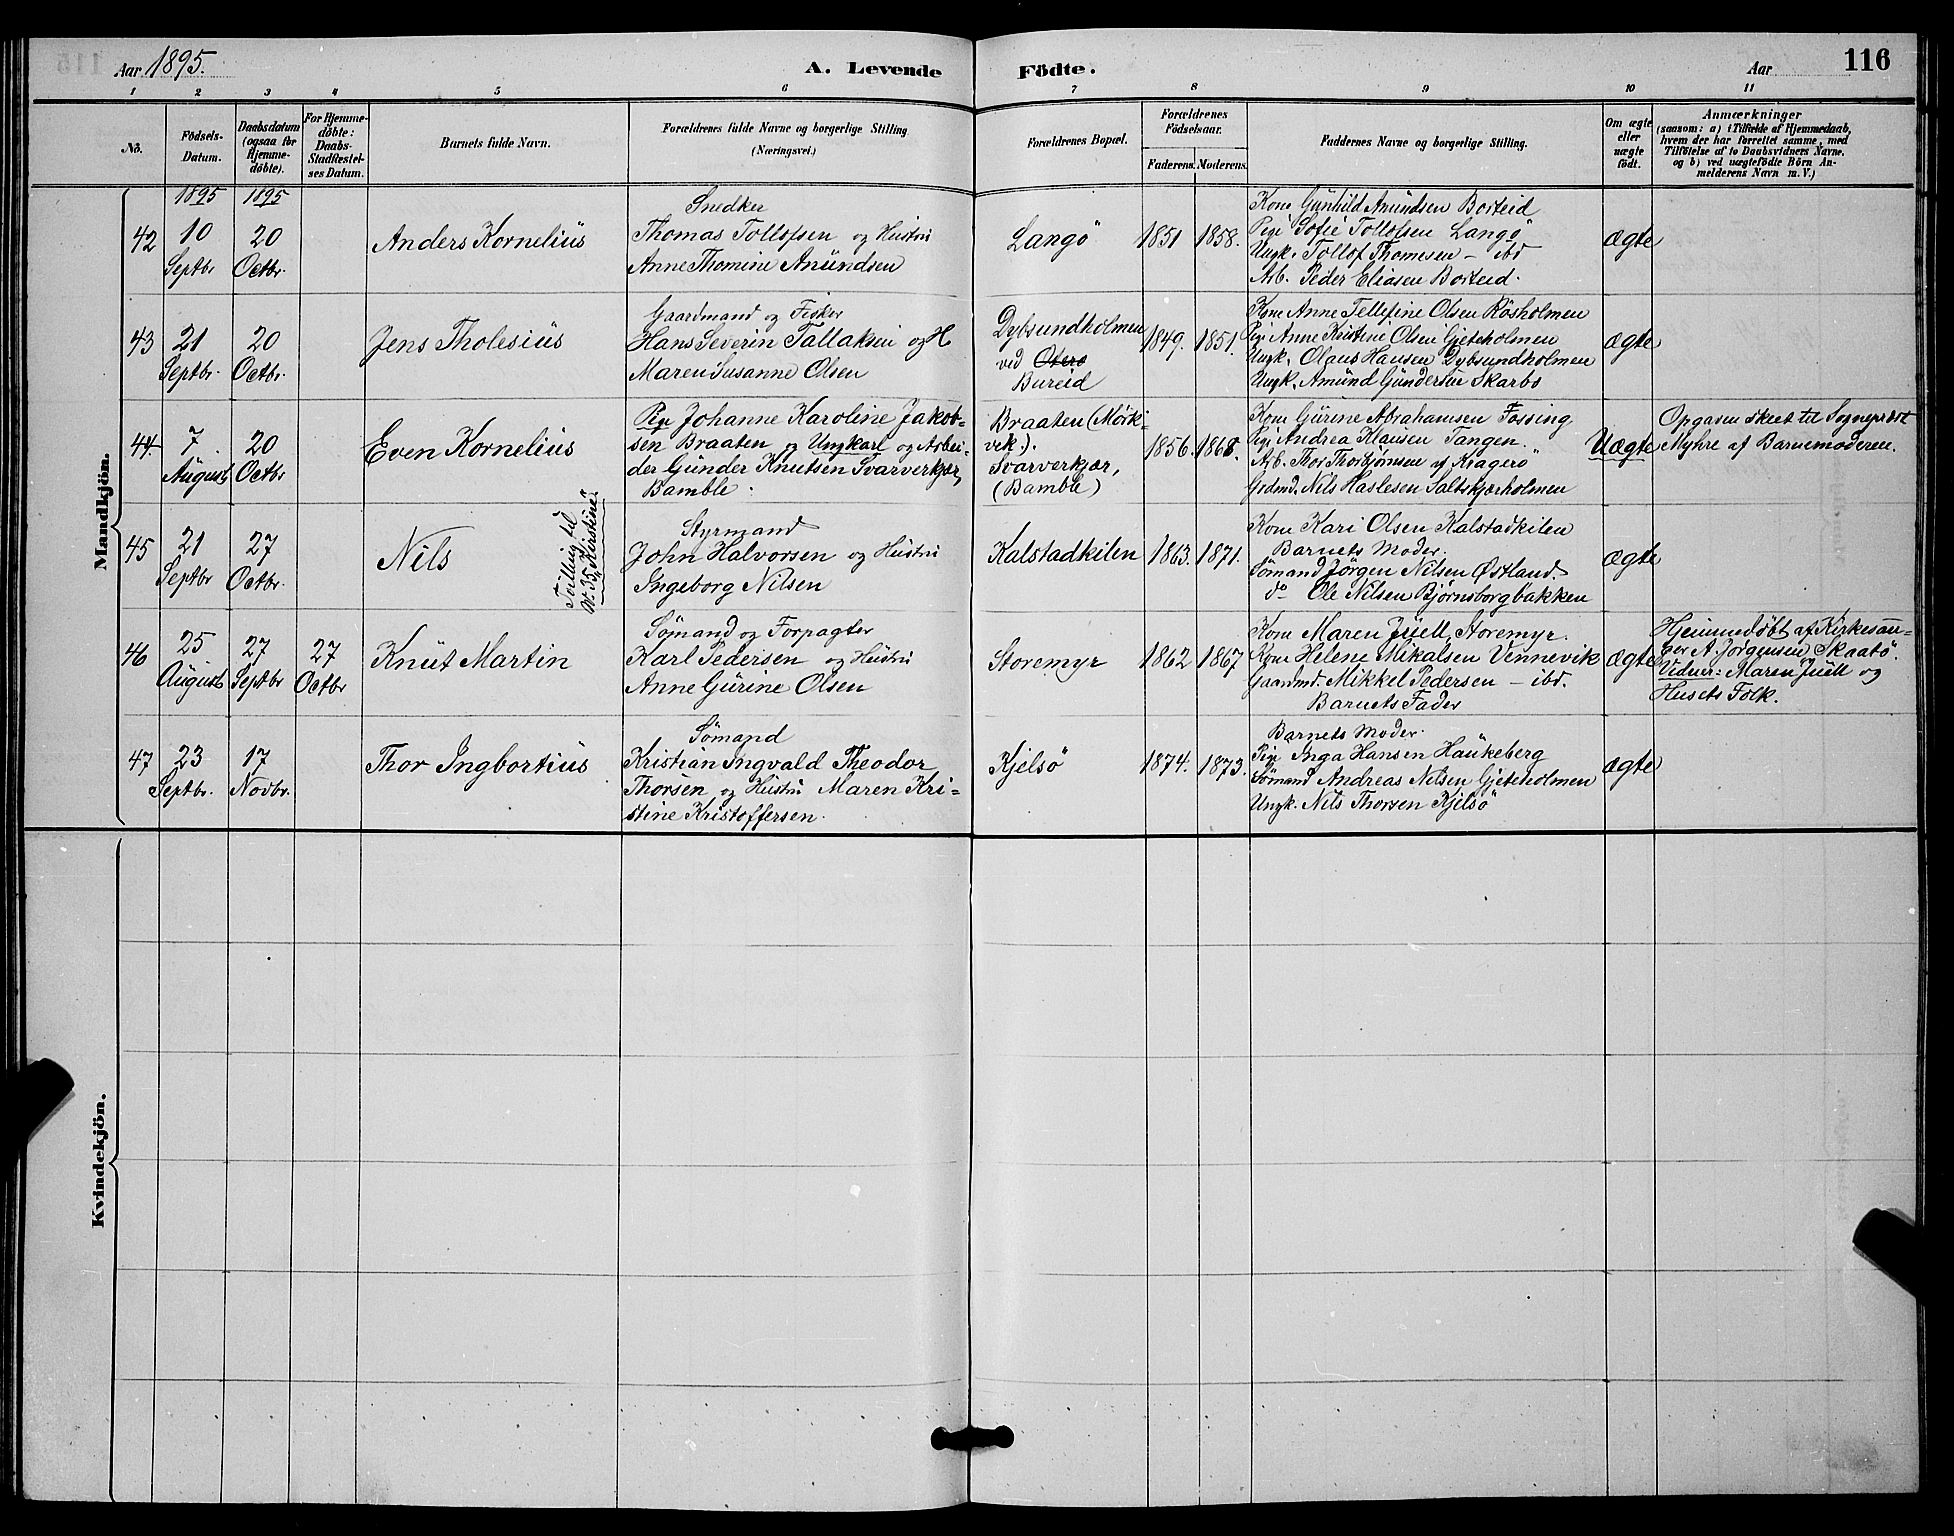 Aar 1895.
A. Levende Födte.
Aar
116
1 2 3 4 5 6 7 8 9 10 11
No.
Födsels-Datum.
Daabsdatum (ogsaa for Hjemme-døbte).
For Hjemme-døbte: Daabs-Stadfæstel-ses Datum.
Barnets fulde Navn.
Forældrenes fulde Navne og borgerlige Stilling (Næringsvei.)
Forældrenes Bopæl.
Forældrenes Födselsaar.
Faderens. Moderens.
Faddernes Navne og borgerlige Stilling.
Om ægte eller uægte født.
Anmærkninger
(saasom: a) i Tilfælde af Hjemmedaab,
hvem der har forrettet samme, med
Tilföielse af to Daabsvidners Navne,
og b) ved uægtefödte Börn An-
melderens Navn m. V.)
Mandkjön.
1895 1895
42
10 Septbr
20 Octbr.
Anders Kornelius
Snedker
Thomas Tollofsen og Hustru
Anne Thomine Anundsen
Langö
1851 1858.
Kone Gunhild Amundsen Borteid
Pige Sofie Tollofsen Langö
Ungk. Tollof Thomesen - ibd
Arb. Peder Eliasen Borteid.
ægte
43
21 Septbr.
20 Octbr.
Jens Tholesius
Gaardmand og Fisker
Hans Severin Tallaksen og H
Maren Susanne Olsen
Dybsundholmen
ved Oterö
Bureid
1849. 1851.
Kone Anne Tellefine Olsen Rösholmen
Pige Anne Kristine Olsen Gjeteholmen
Ungk. Olaus Hansen Dybsundholmen
Ungk. Amund Gundersen Skarbo
ægte
44
7 August
20 Octbr
Even Kornelius
Pige Johanne Karoline Jakob-
sen Braaten og Ungkarl og Arbei-
der Gunder Knutsen Svarverkjær,
Bamble.
Braaten (Mörk-
vek.).
Svarverkjær,
(Bamble)
1856. 1868.
Kone Gurine Abrahamsen Fossing
Pige Andrea Klausen Tangen.
Arb. Thor Thorbjörnsen af Kragerö
Grdmd. Nils Haslesen Saltskjærholmen
Uægte
Opgaven skeet til Sogneprest
Myhre af Barnemoderen.
45
21 Septbr
27 Octbr.
Nils
Tvilling til
No 35 "Kirstine"
Styrmand
John Halvorsen og Hustru
Ingeborg Nilsen
Kalstadkilen
1863. 1871.
Kone Kari Olsen Kalstadkilen
Barnets Moder.
Sømand Jörgen Nilsen Østland.
do Ole Nilsen Bjørnsborgbakken
ægte
46
25 August
27 Septbr
27 Octbr
Knut Martin
Sømand og Forpagter
Karl Pedersen og Hustru
Anne Gurine Olsen
Storemyr
1862 1867
Kone Maren Juell, Storemyr.
Kone Helene Mikalsen Vennevik
Gaardmd. Mikkel Pedersen - ibd.
Barnets Fader
ægte
Hjemmedöbt af Kirkesan-
ger A. Jörgensen Skaatö.
Vidner: Maren Juell og
Husets Folk.
47
23 Septbr.
17 Novbr.
Thor Ingbortius
Sømand
Kristian Ingvald Theodor
Thorsen og Hustru Maren Kri-
stine Kristoffersen.
Kjelsö
1874. 1873.
Barnets Moder.
Pige Inga Hansen Haukeberg
Sömand Andreas Nilsen Gjeteholmen
Ungk. Nils Thorsen Kjelsö
ægte
Kvindekjön.